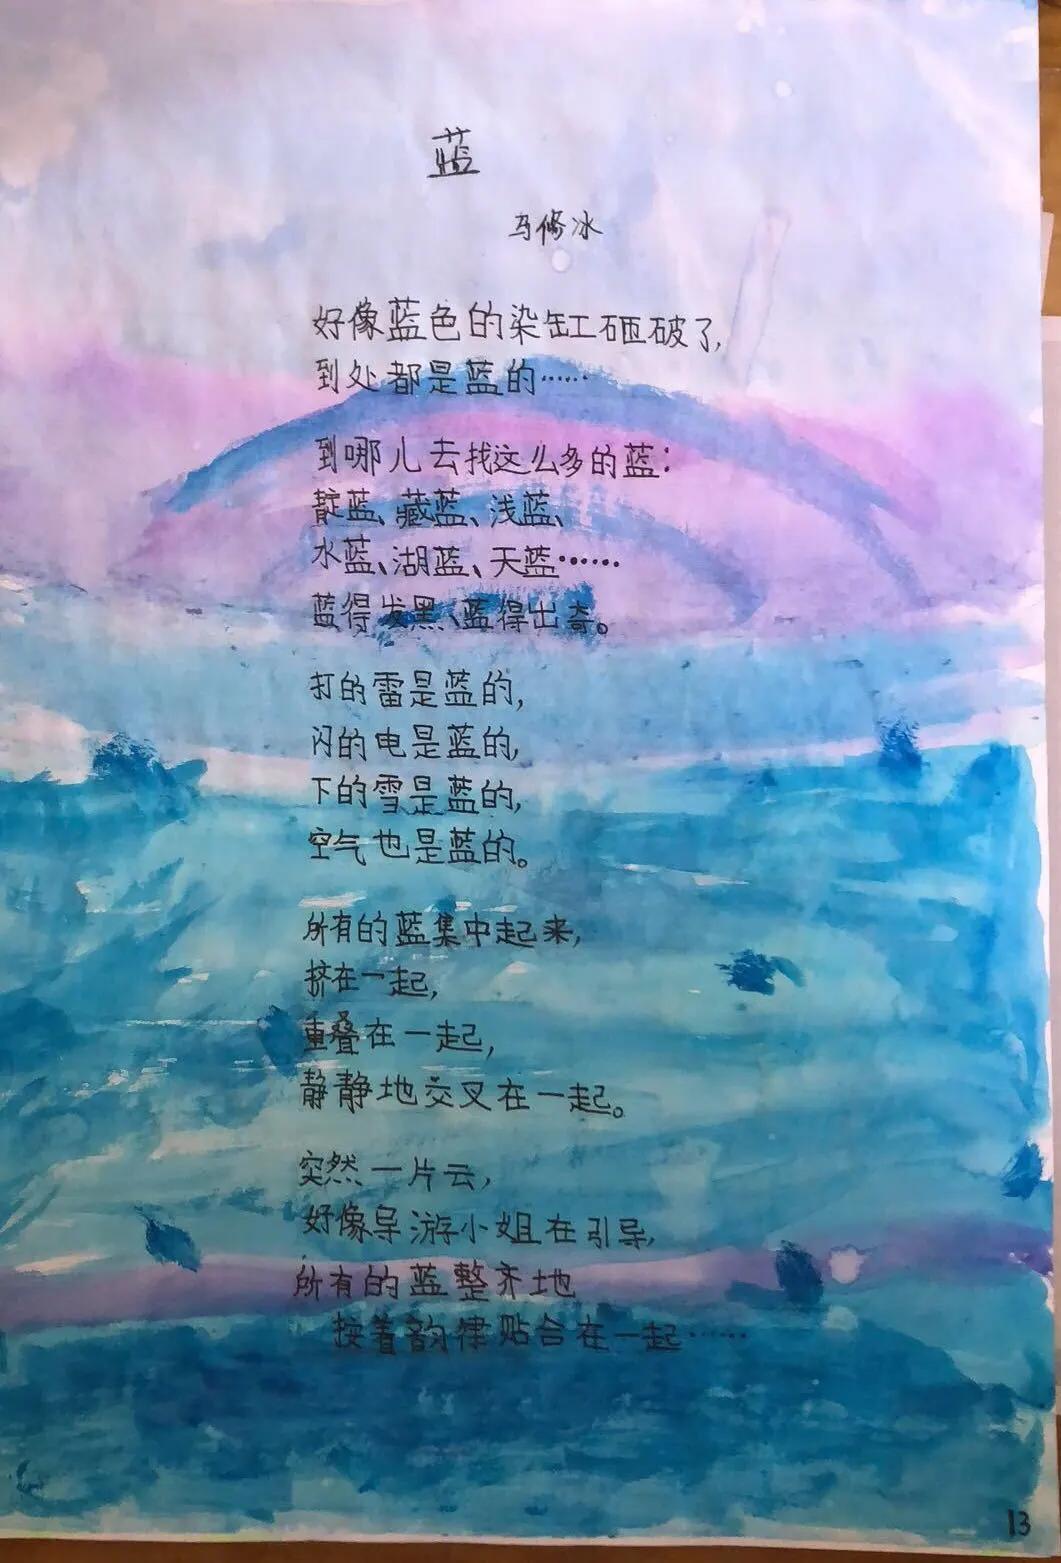 蓝
马修冰
好像蓝色的染缸砸破了,
到处都是蓝的……
到哪儿去找这么多的蓝:
靛蓝、藏蓝、浅蓝、
水蓝、湖蓝、天蓝……
蓝得发黑、蓝得出奇。
打的雷是蓝的,
闪的电是蓝的,
下的雪是蓝的,
空气也是蓝的。
所有的蓝集中起来,
挤在一起,
重叠在一起,
静静地交叉在一起。
突然一片云,
好像导游小姐在引导,
所有的蓝整齐地
按着韵律贴合在一起……
13